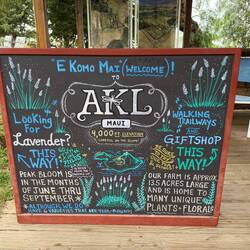 "E Komo Mai (Welcome!)
TO
AKL
MAUI
4,000 FT. ELEVATION
Looking
For
Lavender?
THIS
WAY!
PEAK BLOOM IS
IN THE MONTHS
OF JUNE THRU
SEPTEMBER*
*ALTHOUGH WE DO
HAVE 4 VARIETIES THAT ARE YEAR-ROUND!
WALKING
TRAILWAYS
AND
GIFTSHOP
THIS
WAY!
OUR FARM IS APPROX
13.5 ACRES LARGE
AND IS HOME TO
MANY UNIQUE
PLANTS & FLORALS